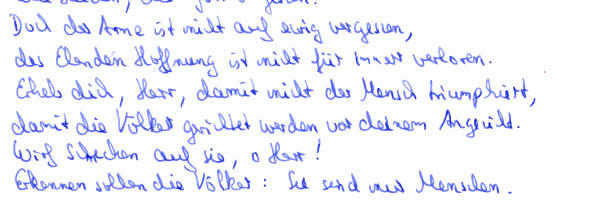 Doch der Arme ist nicht auf ewig vergessen,
des Elenden Hoffnung ist nicht für immer verloren.
Erheb dich, Herr, damit nicht der Mensch triumphiert,
damit die Völker gerichtet werden vor deinem Angesicht.
Wirf Schrecken auf sie, o Herr!
Erkennen sollen die Völker: Sie sind nur Menschen.